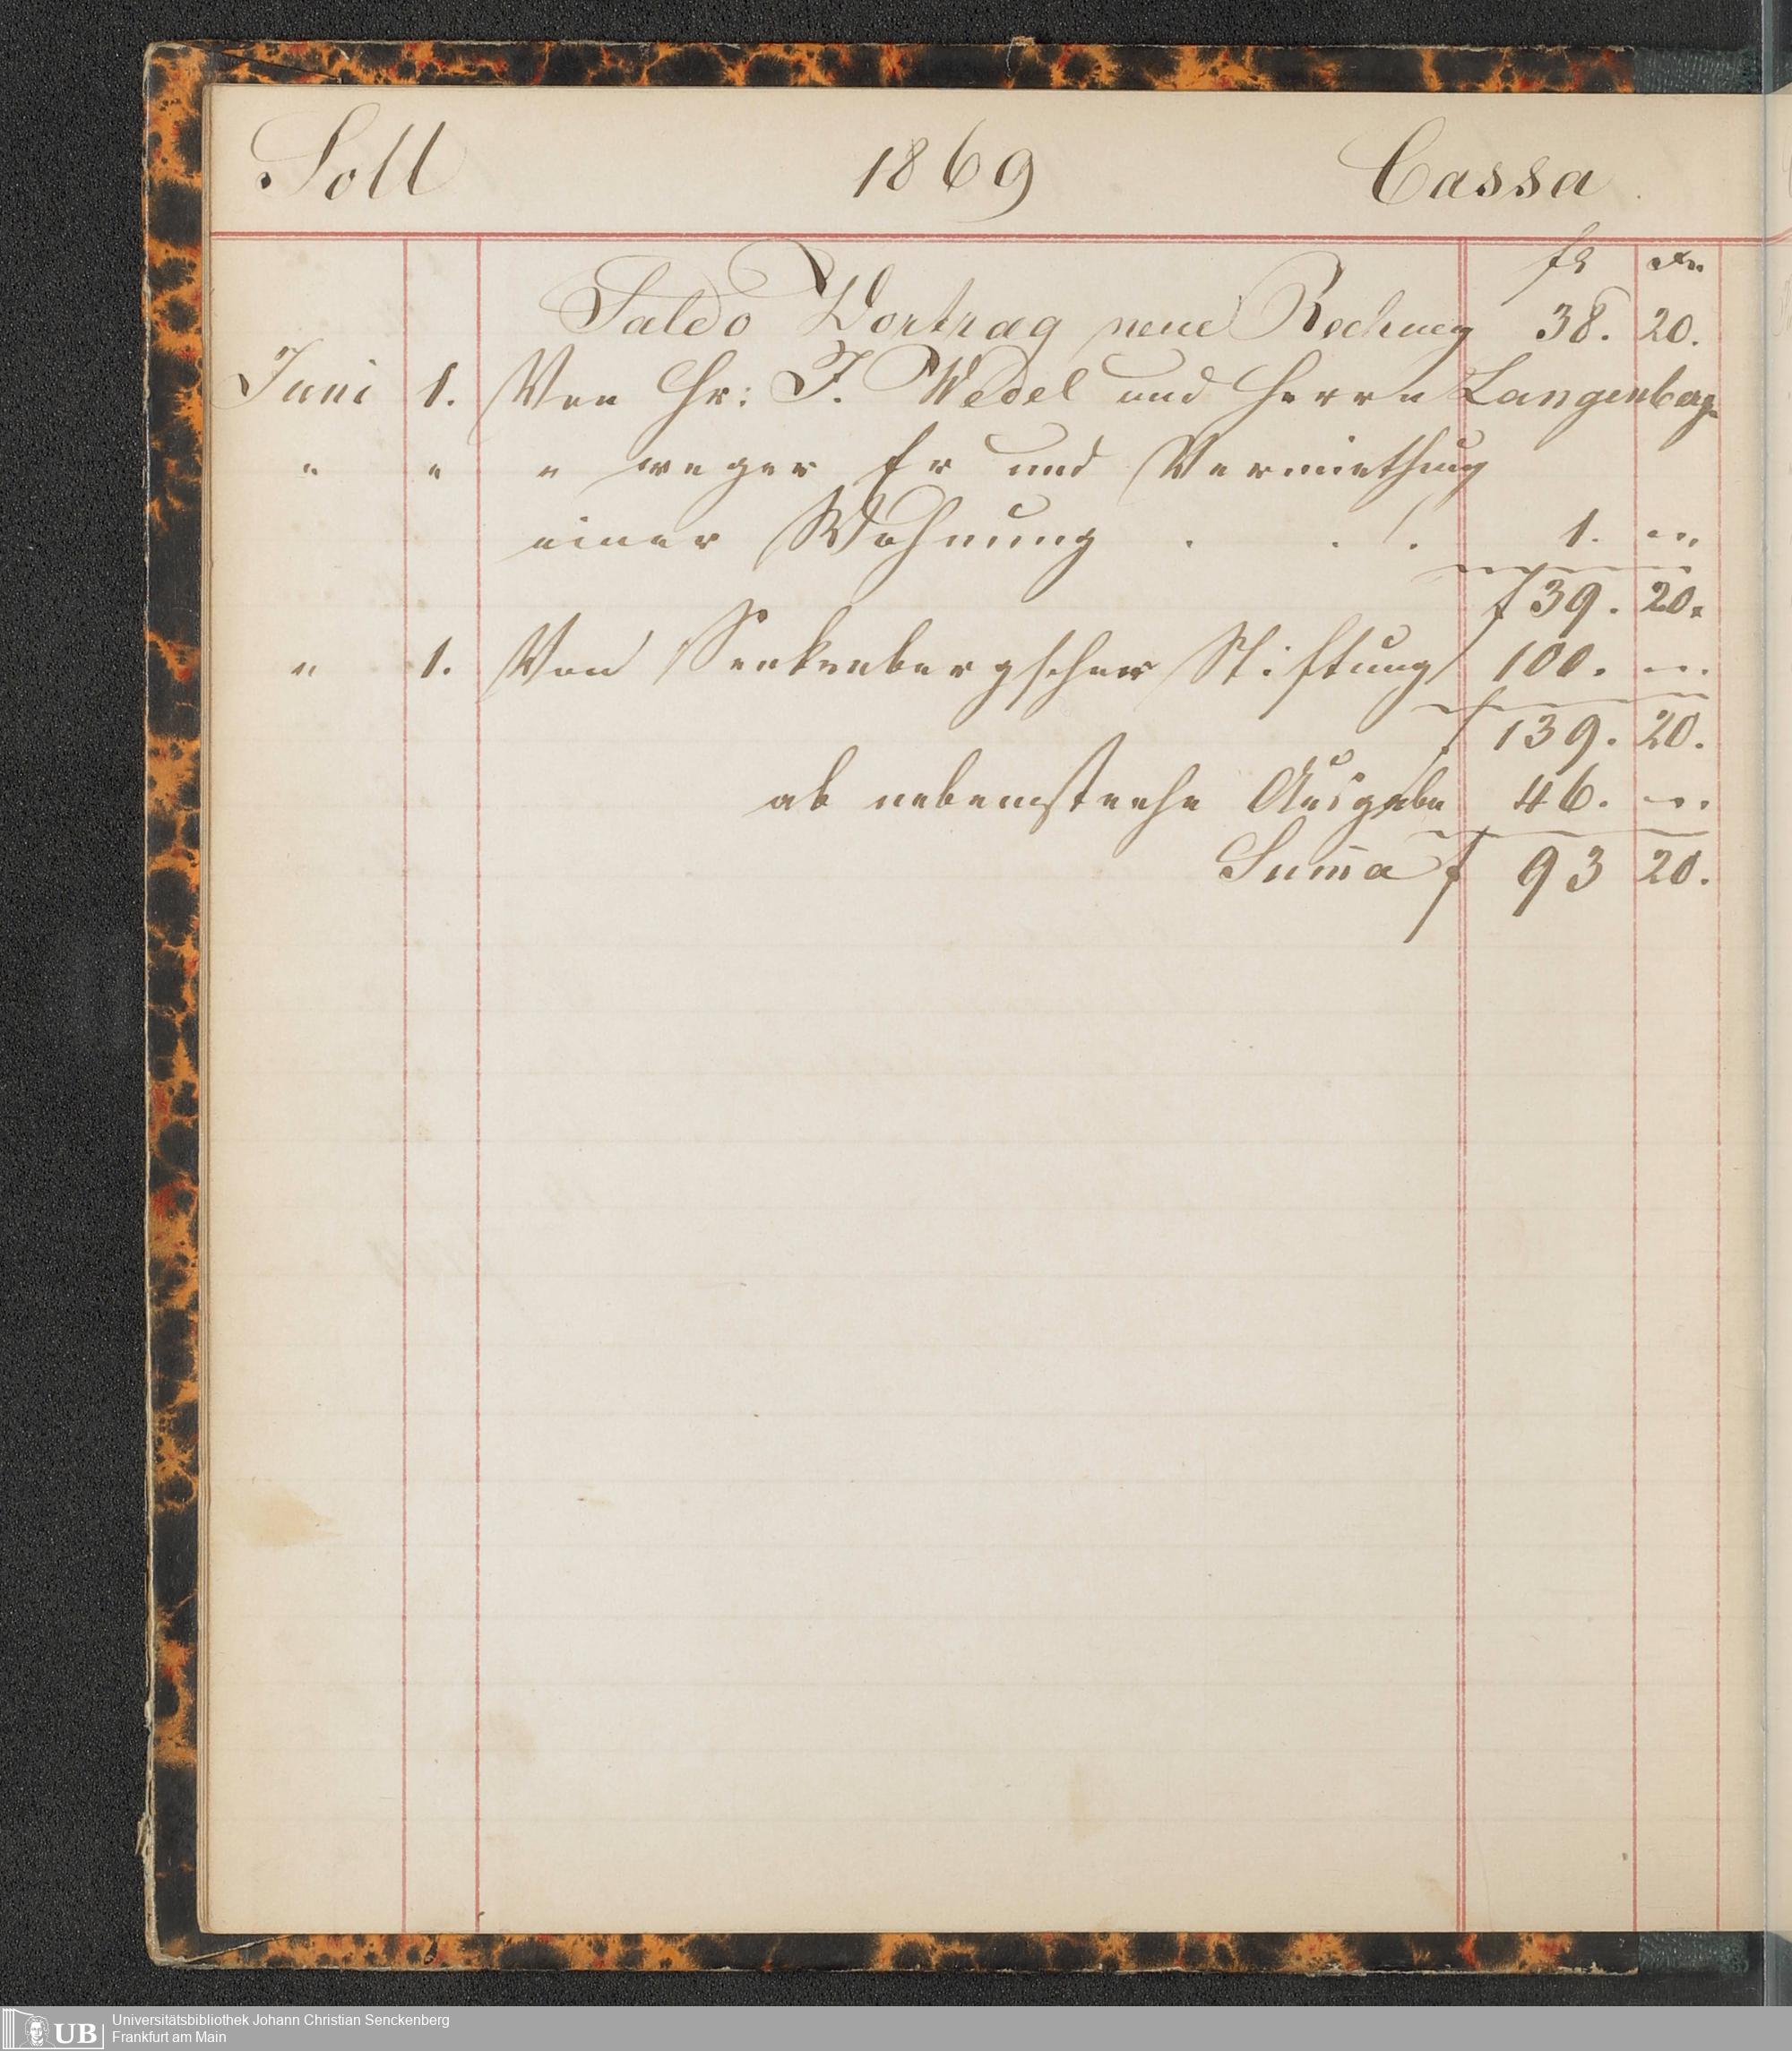 Soll 1869 Cassa
fl xr
Saldo Vortrag neue Rechnug 38. 20.
Juni 1. Von Hr: F. Wedel und Herrn Langenberg
" " " wegen Er und Vermiethung
einer Wohnung . . . 1. "
f 39. 20.
" 1. Von Senkenbergscher Stiftung 100. "
f 139. 20.
ab nebenstehe Ausgabe 46. "
Suma f 93 20.
UB
Universitätsbibliothek Johann Christian Senckenberg
Frankfurt am Main